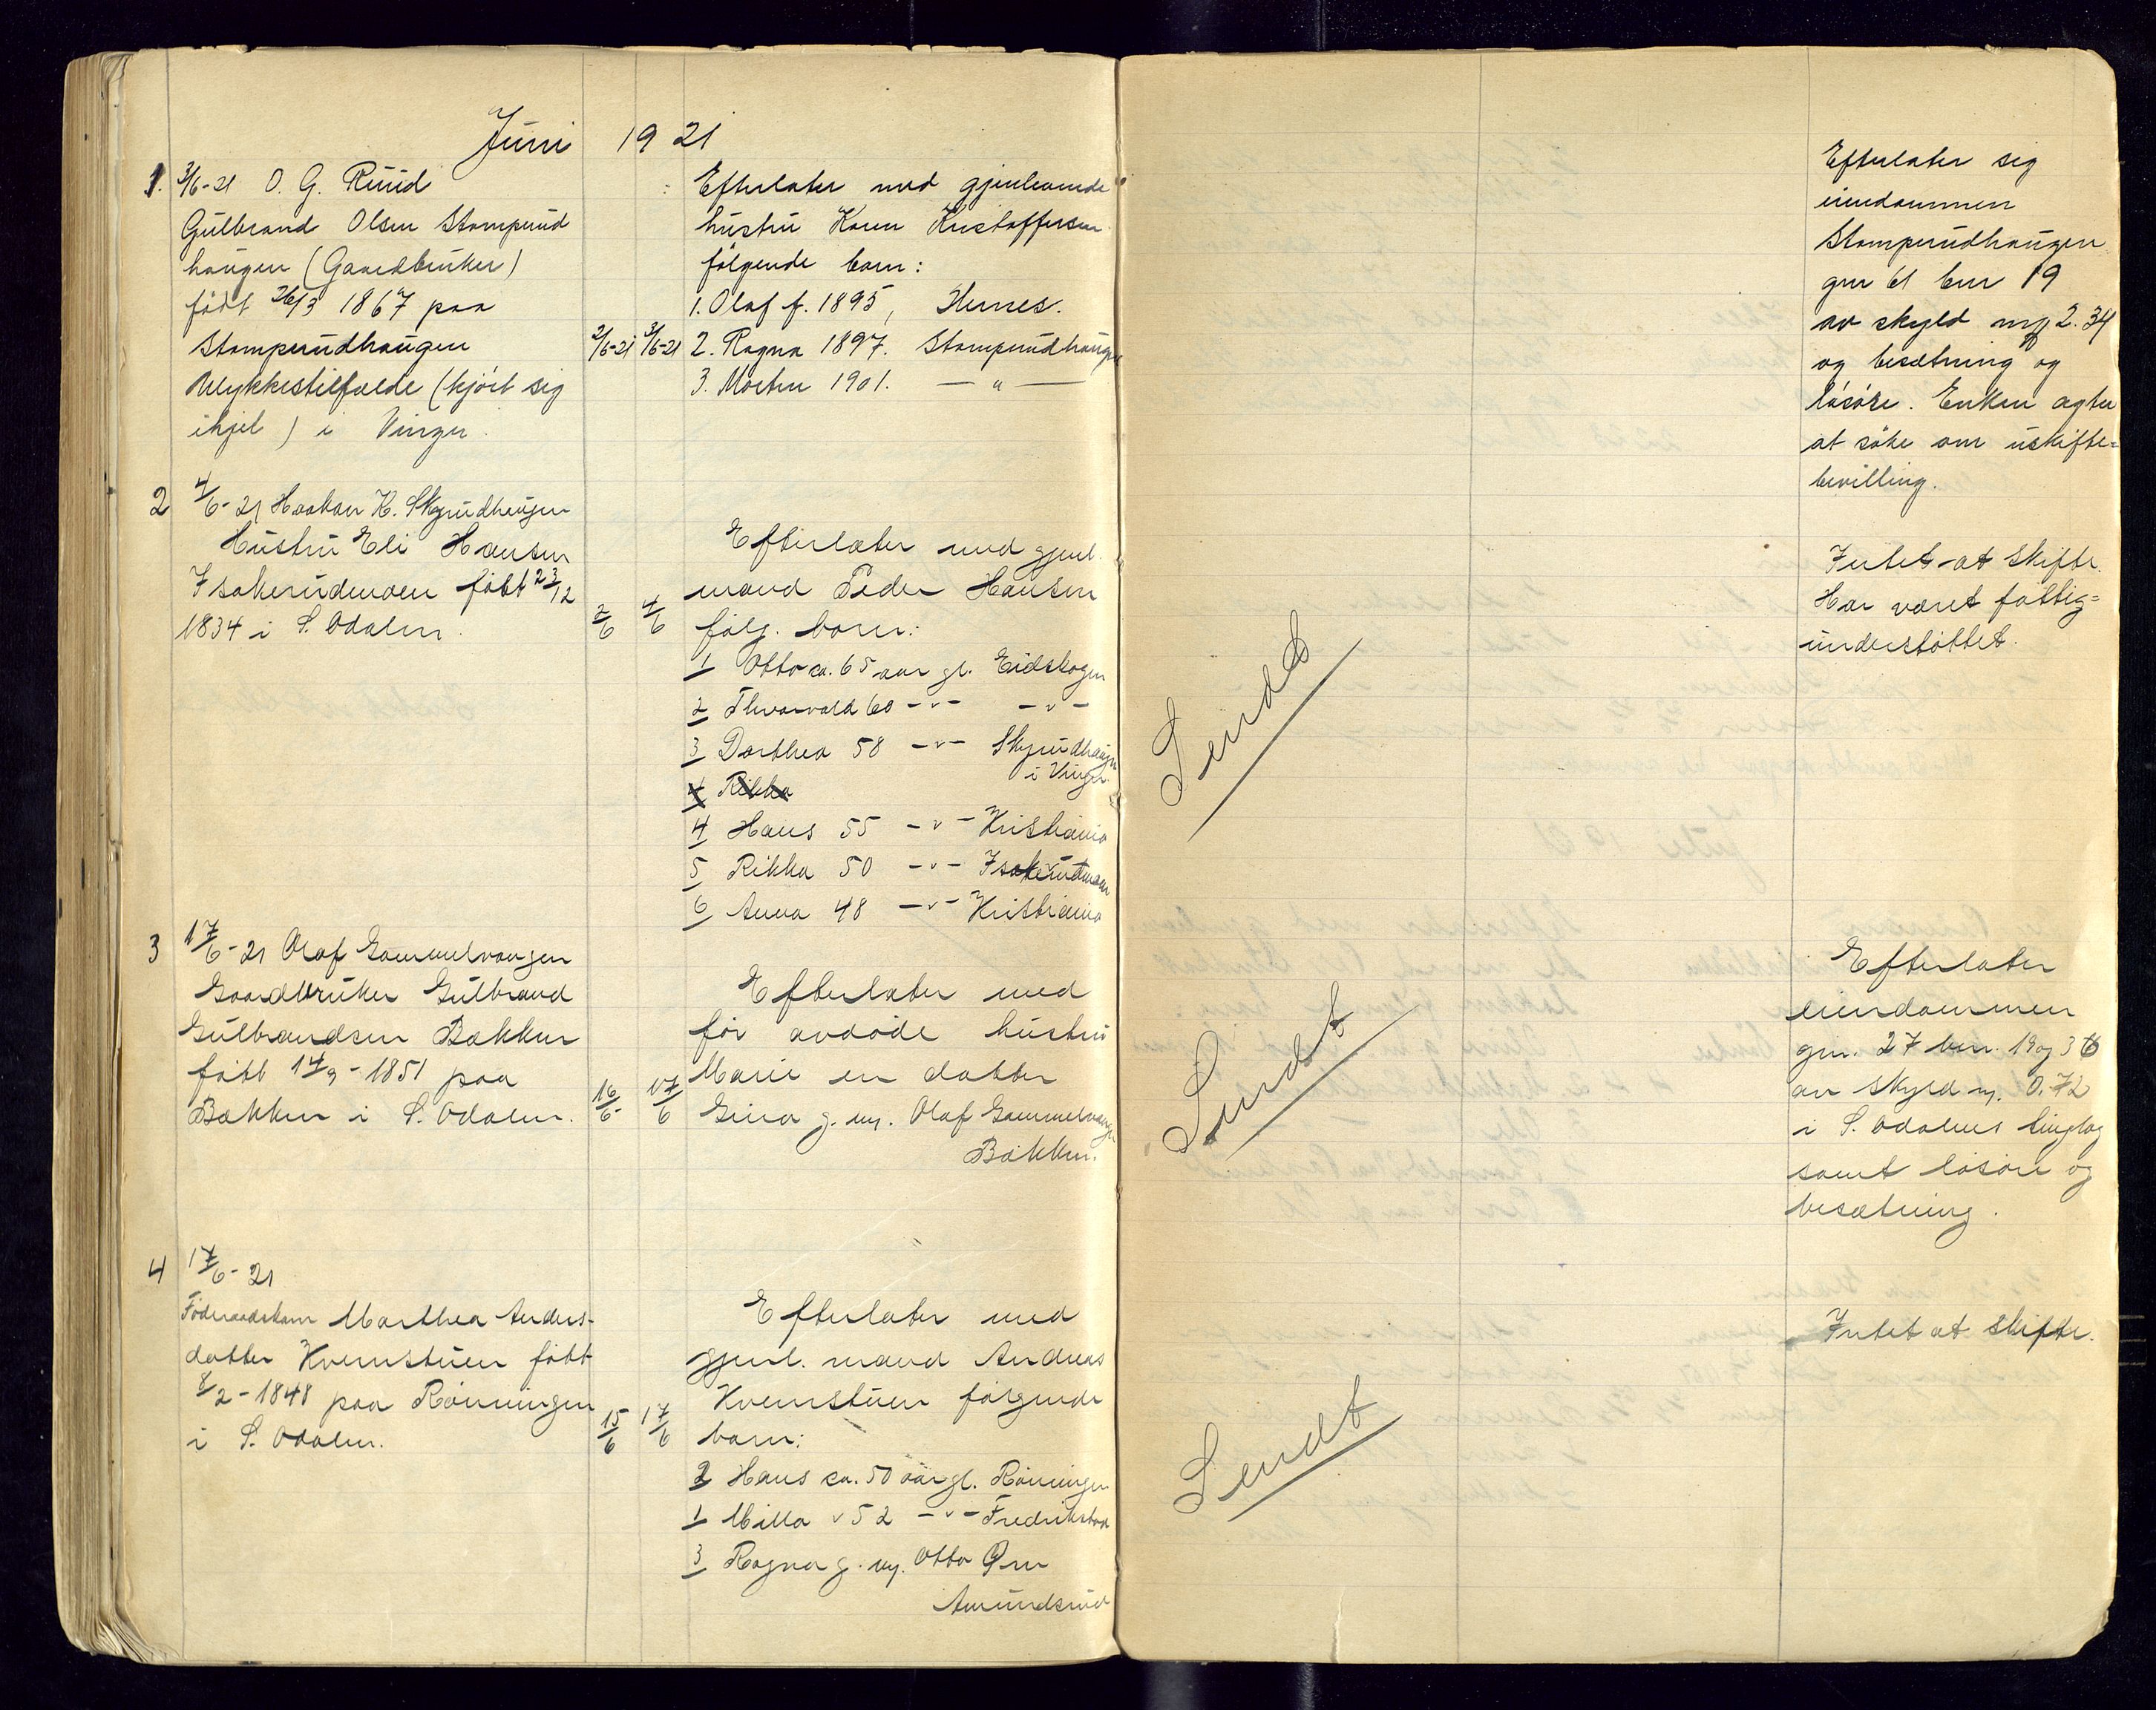 Juni 1921
1. 3/6-21 O. G. Ruud
Gulbrand Olsen Stomperud
haugen (Gaardbruker)
født 26/3 1867 paa
Stomperudhaugen
Ulykkestilfælde (kjørt sig
ihjel) i Vinger.
2/6-21 3/6-21
Efterlater med gjenlevende
hustru Karen Kristoffersen
følgende barn:
1. Olaf f. 1895,
2. Ragna 1897. Stomperudhaugen
3. Morten 1901. — " —
Efterlater sig
eiendommen
Stomperudhaugen
gnr 61 bnr 19
av skyld mrk 2.34
og besætning og
løsøre. Enken agter
at søke om uskifte=
bevilling.
2 4/6-21 Haakon K. Skyrudhaugen
Hustru Eli Hansen
Isakerudmoen født 23/12
1834 i S. Odalen.
2/6 4/6
Efterlater med gjenl.
mand Peder Hansen
følg. barn:
1 Otto ca. 65 aar gl. Eidskogen
2 Thorvald 60 -"- -"-
3 Dorthea 58 -"- Skyrudhaugen
i Vinger
4 Rikka
4 Hans 55 -"- Kristiania
5 Rikka 50 -"- Isakerudmoen
6 Anna 48 -"- Kristiania
Sendt
Intet at skifte.
Har været fattig=
understøttet.
3 17/6-21 Olaf Gammelvangen
Gaardbruker Gulbrand
Gulbrandsen Bakken
født 17/9-1851 paa
Bakken i S. Odalen.
16/6 17/6
Efterlater med
før avdøde hustru
Marie en datter
Gina g. m. Olaf Gammelvangen
Bakken.
Sendt
Efterlater
eiendommen
gnr. 27 bnr. 19 og 36
av skyld m. 0.72
i S. Odalens tinglag
samt løsøre og
besætning.
4 17/6-21
Føderaadskone Marthea Anders-
datter Kvernstuen født
8/2-1848 paa Rønningen
i S. Odalen.
15/6 17/6
Efterlater med
gjenl. mand Andreas
Kvernstuen følgende
barn:
2 Hans ca. 50 aar gl. Rønningen
1 Milla " 52 -"- Fredrikstad
3 Ragna g. m. Otto
Amundsrud
Sendt
Intet at skifte.